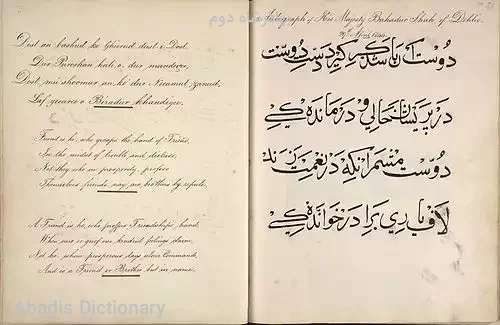 Dost an bashud ke Gheerud dust e Dost
Dur Pureshan hali, o, dur mandegee,
Dost, mu shoomar an ke dur Neeamut zanud,
Laf yearee o Biradur khandegee.
Friend is he, who grasps the hand of Friend,
In the midst of trouble and distress,
Not they who in prosperity, profess
Themselves friends, nay, me, brothers by repute.
A Friend is he, who proffers Friendship's hand,
When care or grief our kindred feelings claim,
Not he, whom prosperous days alone Command,
And is a Friend or Brother but in name.
Autograph of His Majesty Bahadur Shah of Dehlie.
29th April 1844
دوست آن باشد که گیرد دست دوست
در پریشان حالی و درماندگی
دوست مشمر آنکه در نعمت زند
لاف یاری برادر خواندگی
Abadis Dictionary